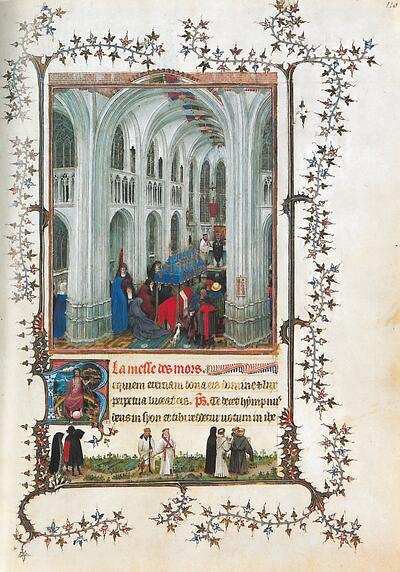 La messe des mors.
equiem eternam dona eis domine & lux
perpetua luceat eis. ps. Te decet ympnus
deus in syon et tibi reddetur uotum in ihe